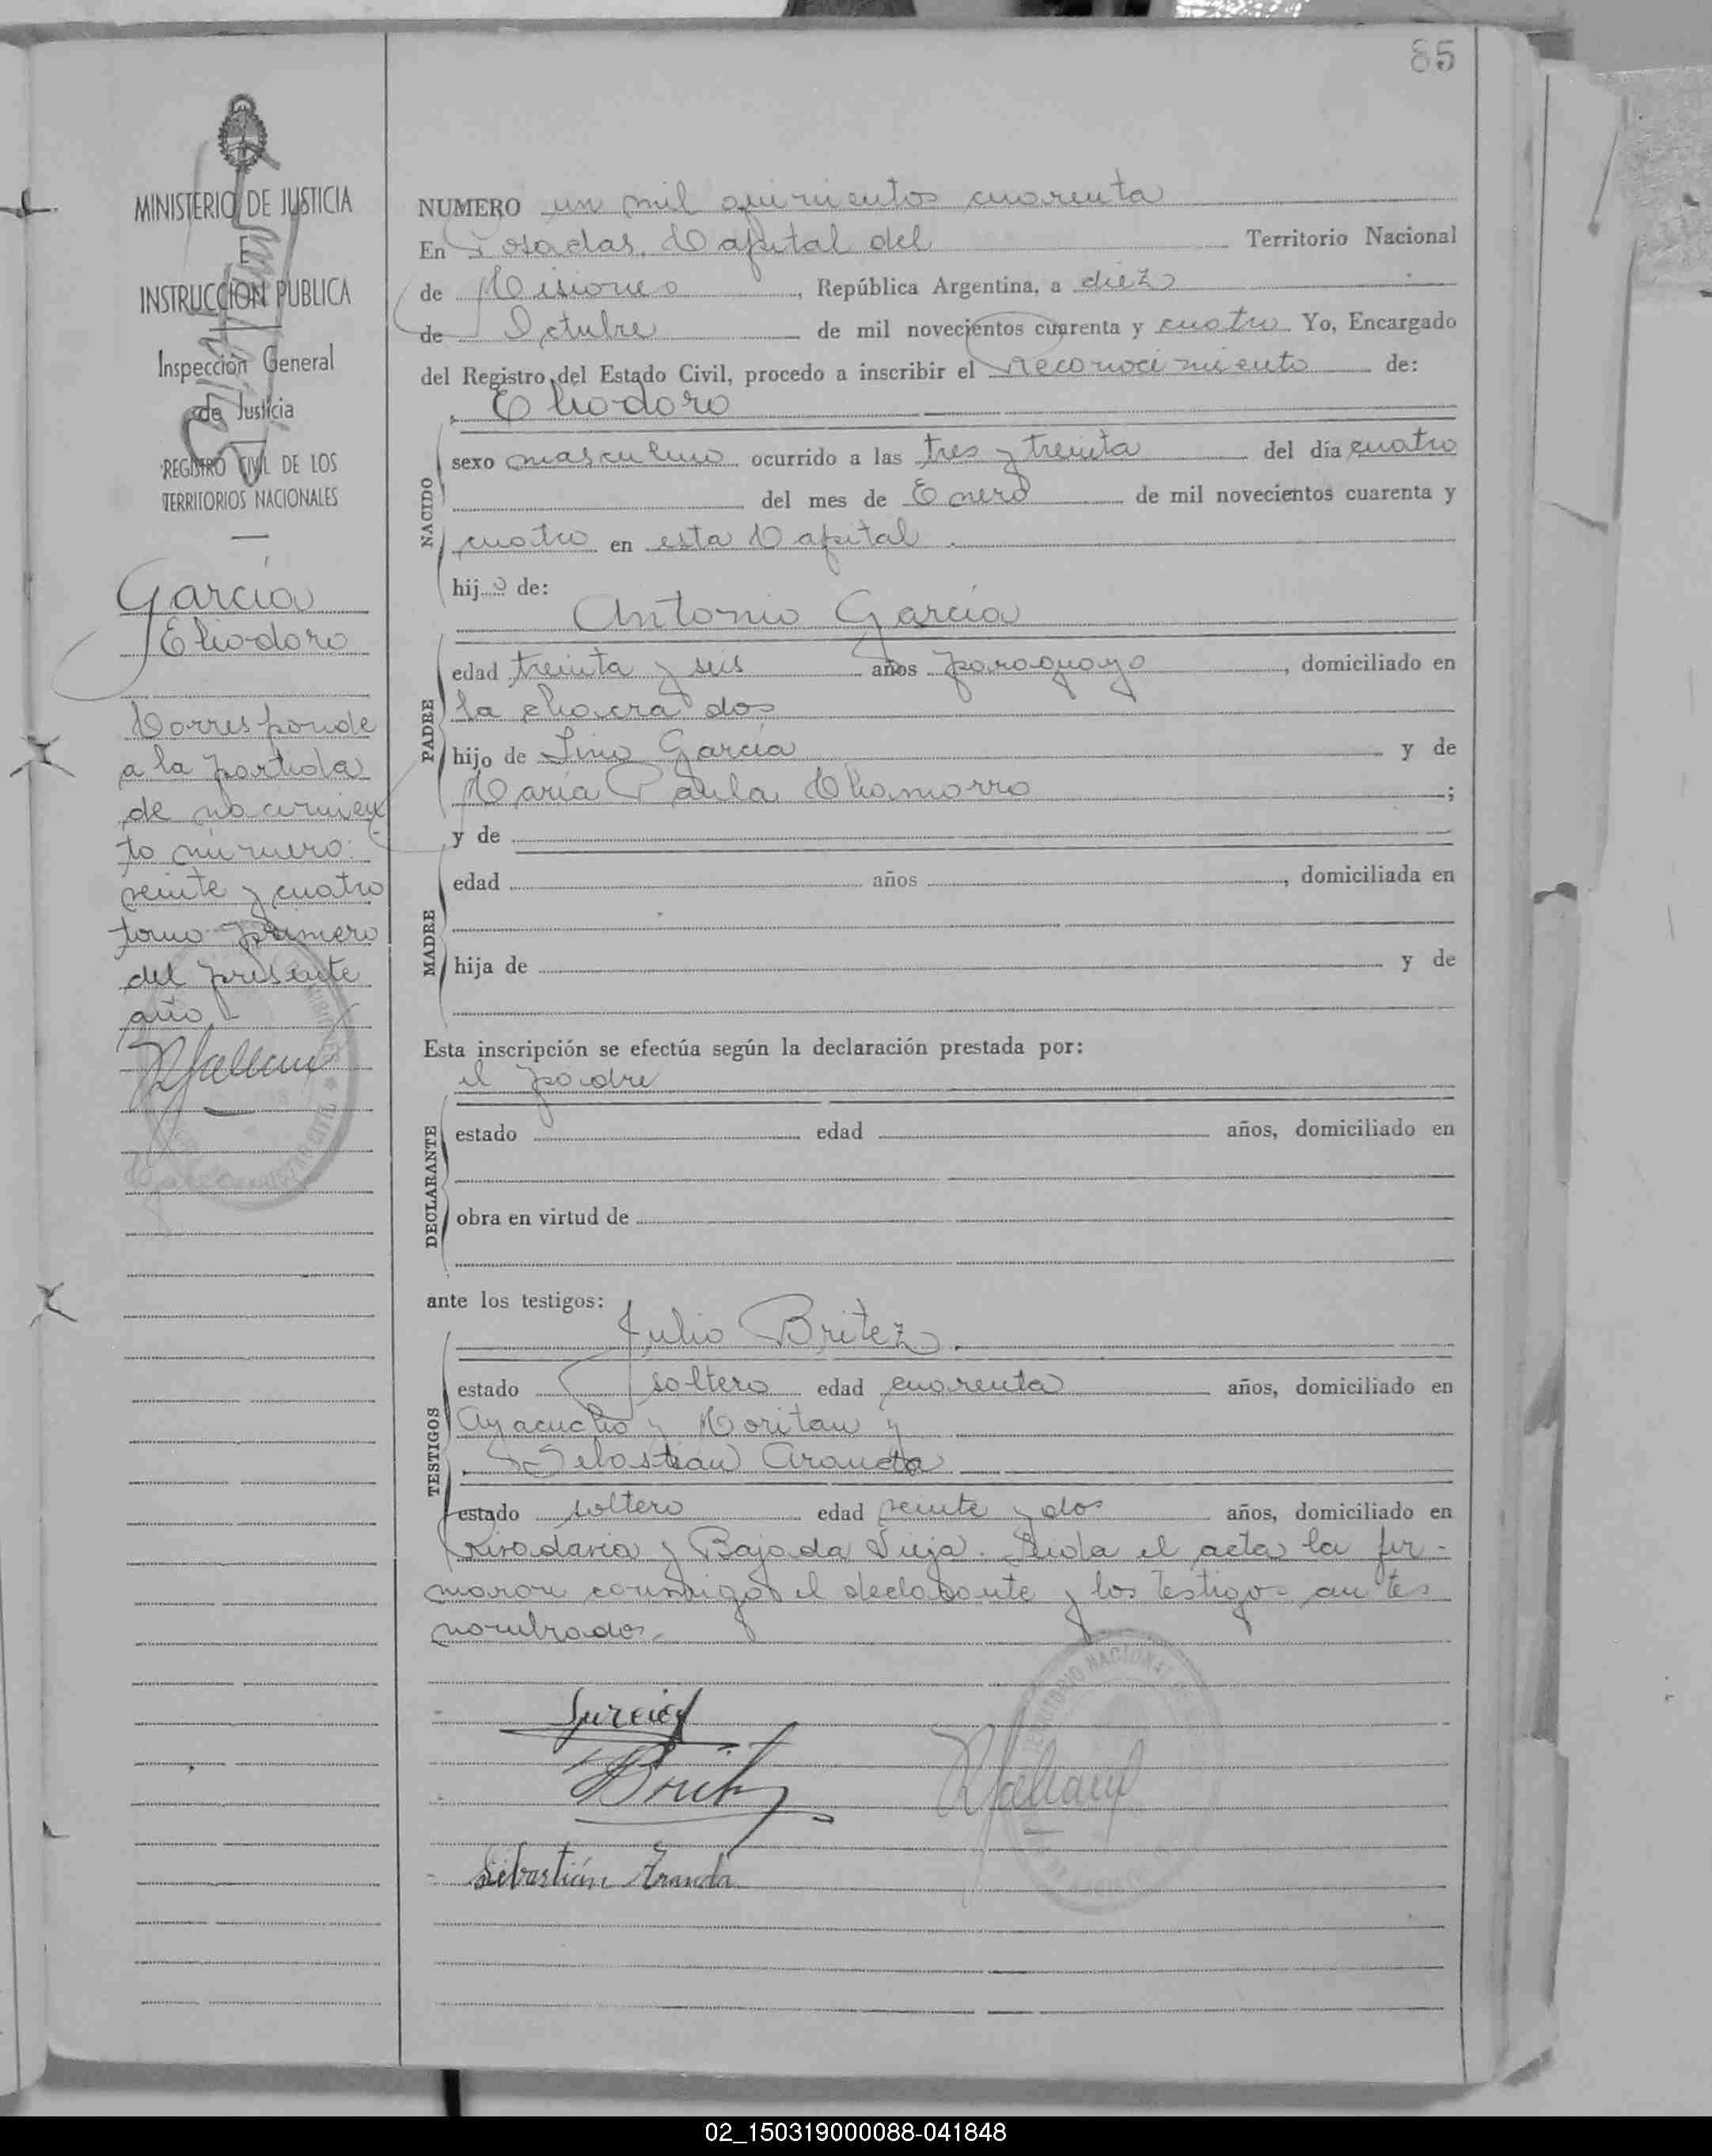 85
MINISTERIO DE JUSTICIA
E
INSTRUCCION PUBLICA
Inspección General
de Justicia
REGISTRO CIVIL DE LOS
TERRITORIOS NACIONALES
García
Eliodoro
Corresponde
a la partida
de nacimien
to número:
veinte y cuatro
tomo primero
del presente
año
NUMERO un mil quinientos cuarenta
En Posadas, Capital del Territorio Nacional
de Misiones, República Argentina, a diez
de Octubre de mil novecientos cuarenta y cuatro Yo, Encargado
del Registro del Estado Civil, procedo a inscribir el reconocimiento de:
Eliodoro
NACIDO
sexo masculino ocurrido a las tres y treinta del día cuatro
del mes de Enero de mil novecientos cuarenta y
cuatro en esta Capital.
hijo de:
Antonio García
PADRE
edad treinta y seis años paraguayo, domiciliado en
la chacra dos
hijo de Lino García y de
María Paula Chamorro;
y de
MADRE
edad años , domiciliada en
hija de y de
Esta inscripción se efectúa según la declaración prestada por:
el padre
DECLARANTE
estado edad años, domiciliado en
obra en virtud de
ante los testigos:
Julio Britez.
TESTIGOS
estado soltero edad cuarenta años, domiciliado en
Ayacucho y Moritan y
Sebastian Aranda
estado soltero edad veinte y dos años, domiciliado en
Rivadavia y Bajada Vieja. Leida el acta la fir-
maron conmigo el declarante y los testigos antes
nombrados.-
TERRITORIO NACIONAL
Sebastián Aranda
02_150319000088-041848